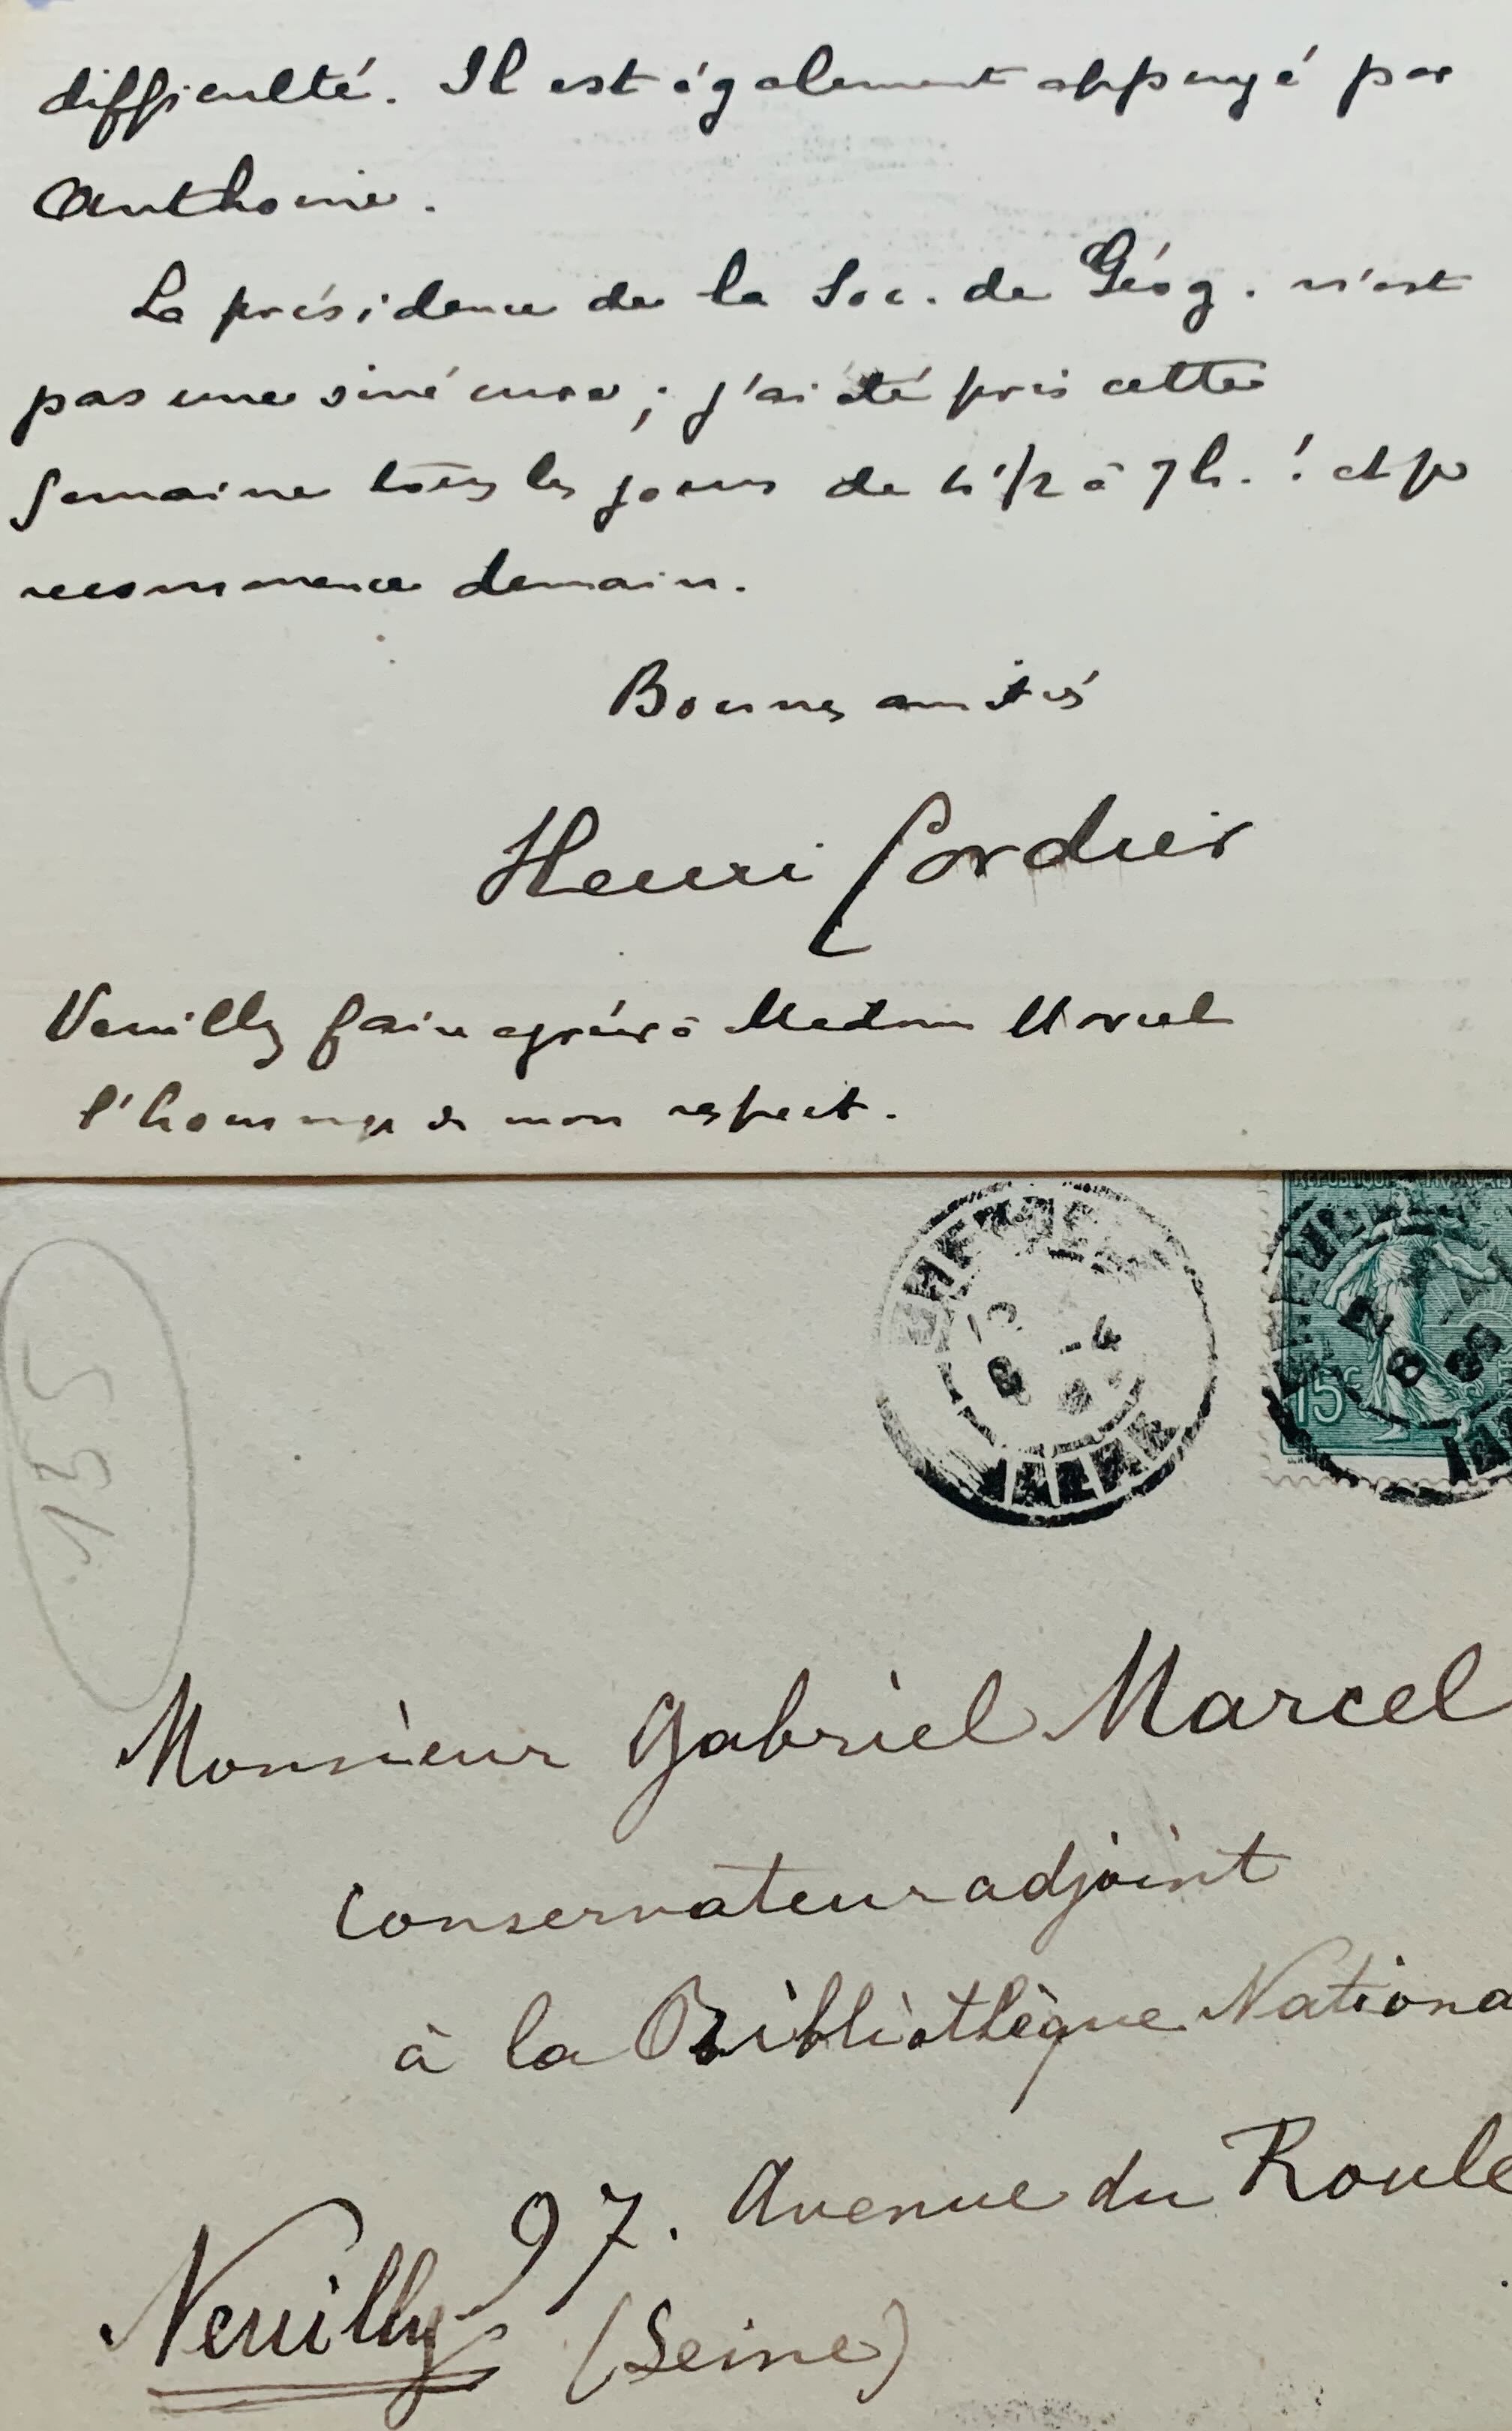 difficulté. Il est également appuyé par
Anthoine.
La présidence de la Soc. de Géog. n'est
pas une sinécure ; j'ai été pris cette
semaine tous les jours de 4 1/2 à 7 h. ! et je
recommence demain.
Bonnes amitiés
Henri Cordier
Veuillez faire agréer à Madame Marcel
l'hommage de mon respect.
155
REPUBLIQUE FRANÇAIS
15c
Monsieur Gabriel Marcel
Conservateur adjoint
à la Bibliothèque Nationa
97. Avenue du Roule
Neuilly (Seine)